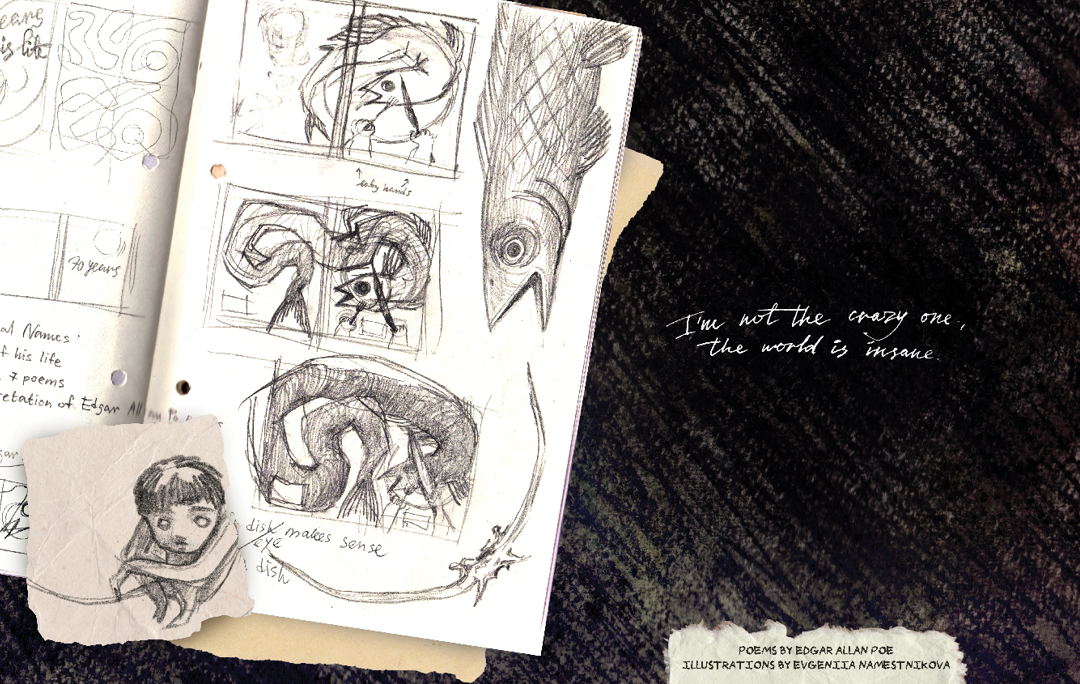 ears
is life
baby hands
70 years
al Names:
f his life
7 poems
retation of Edgar All an Po
gar
disk makes sense
eye
dish
I'm not the crazy one,
the world is insane.
POEMS BY EDGAR ALLAN POE
ILLUSTRATIONS BY EVGENIIA NAMESTNIKOVA